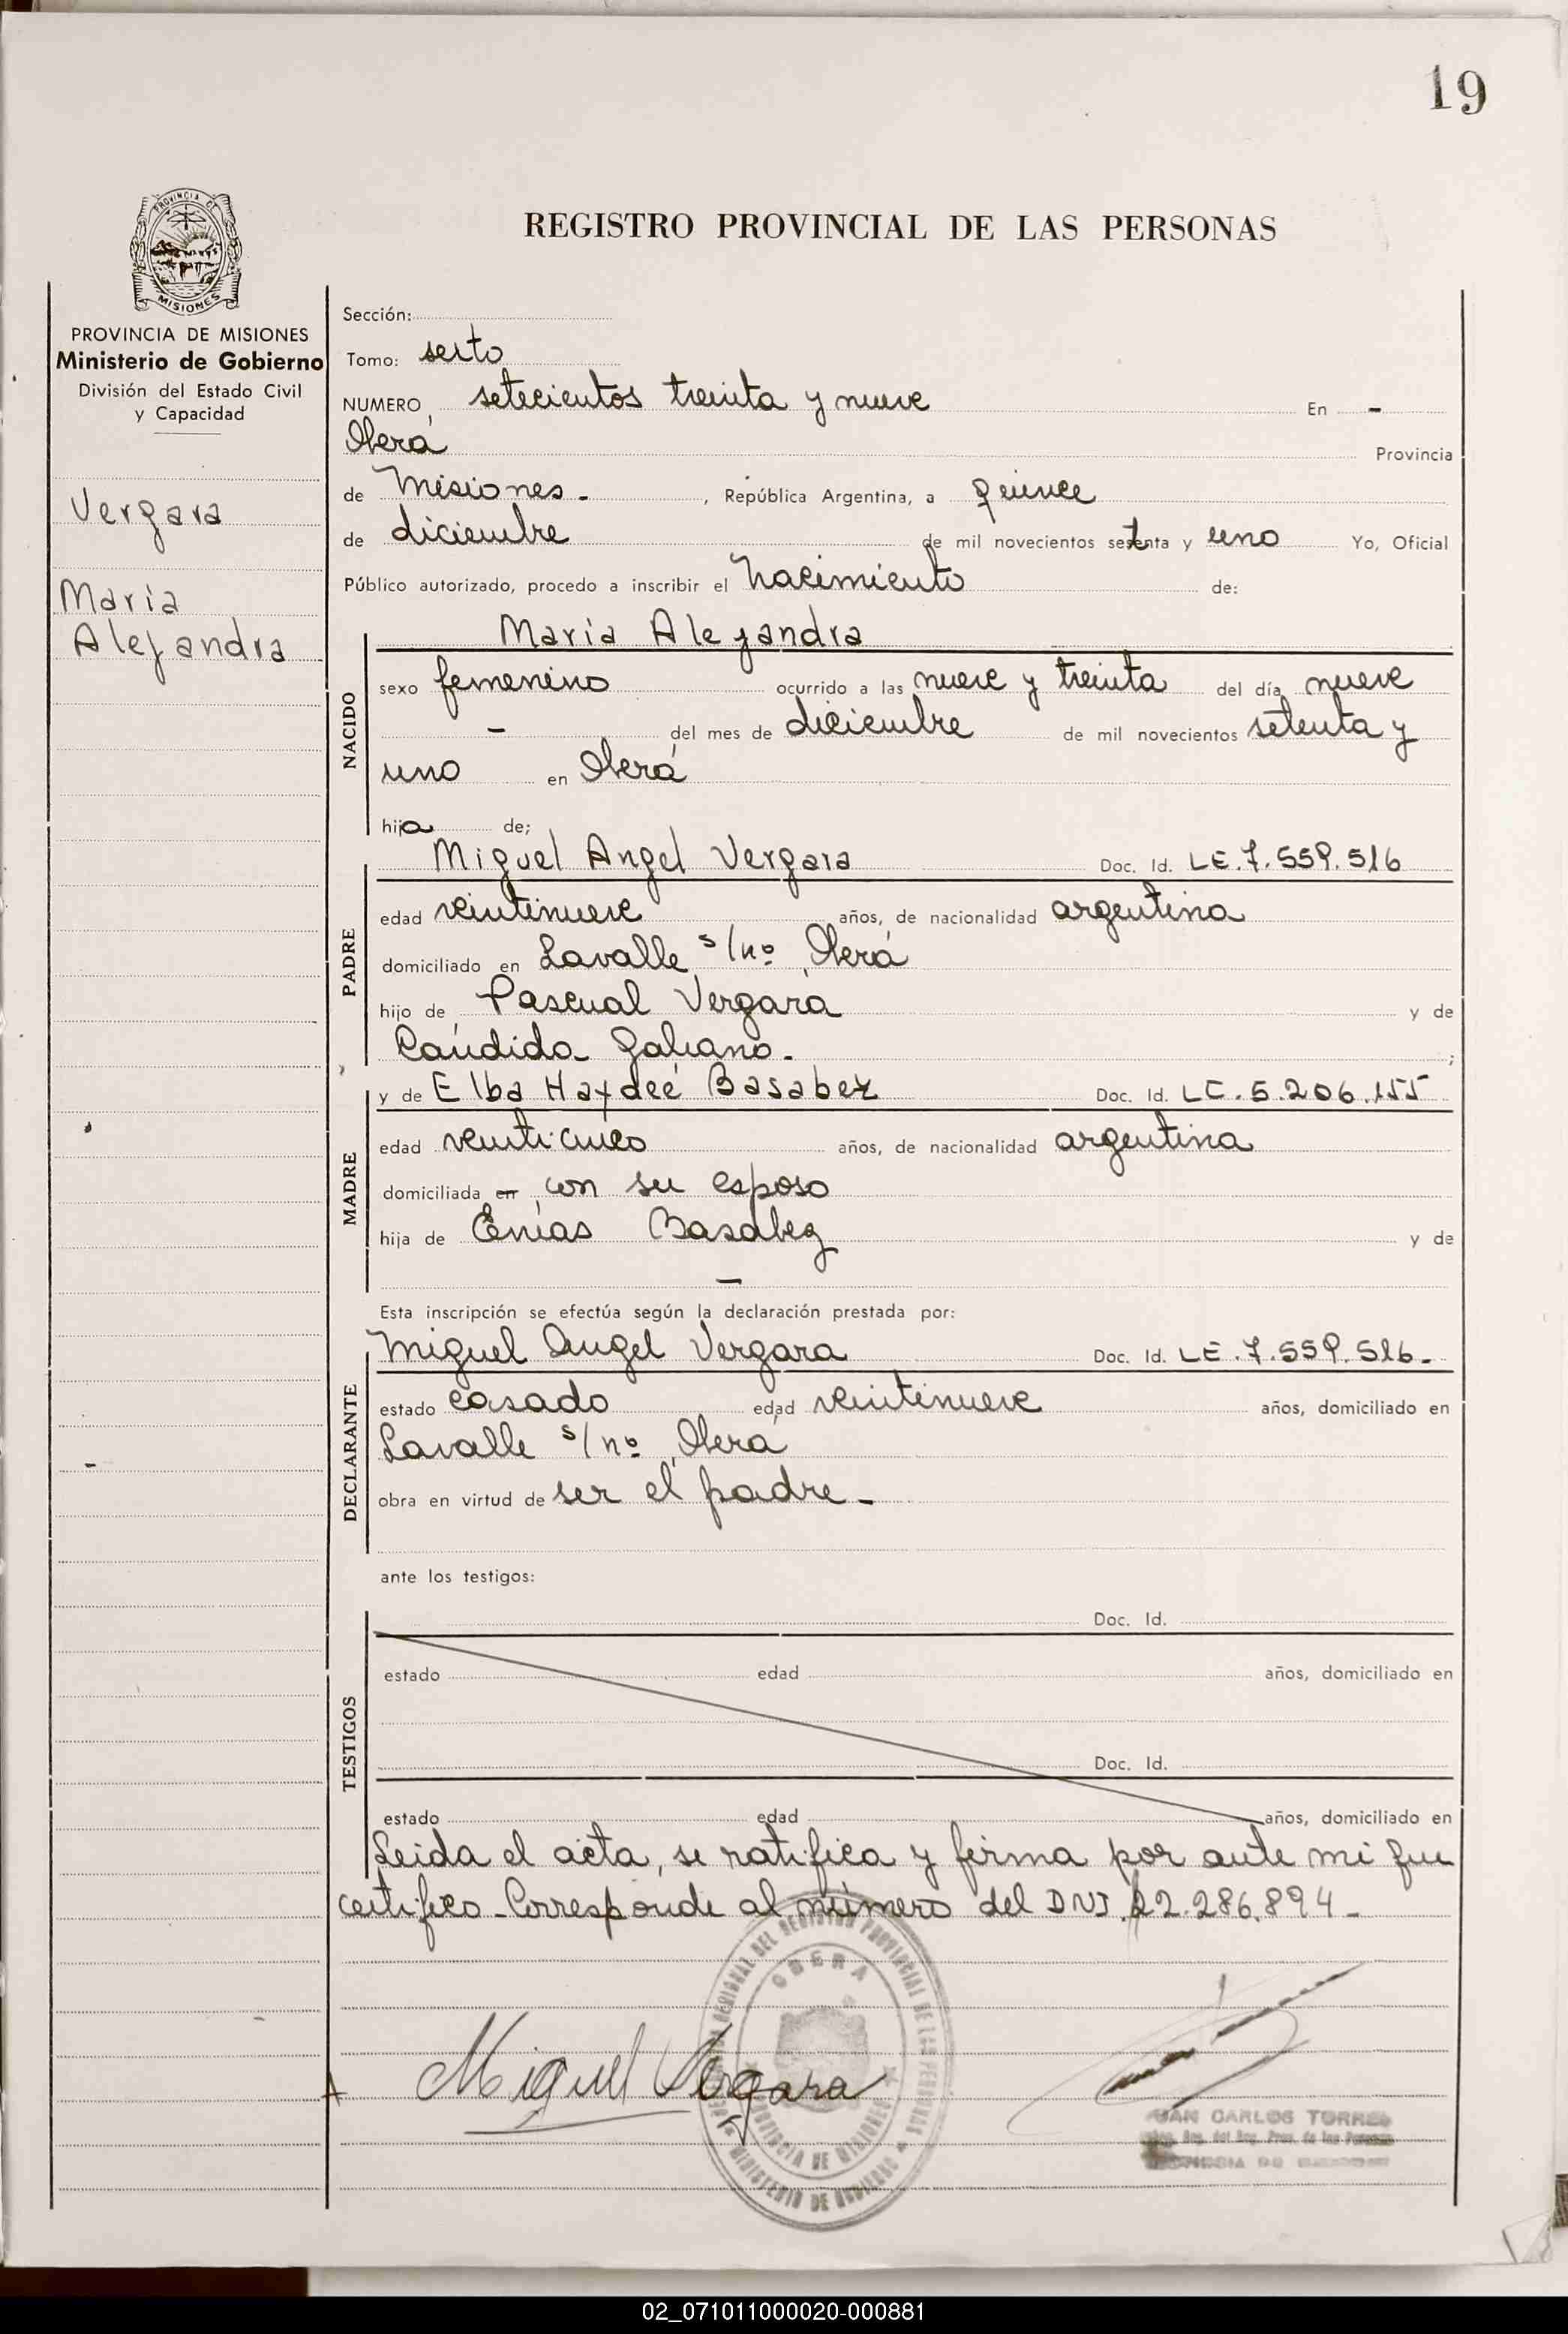 19
PROVINCIA DE MISIONES
REGISTRO PROVINCIAL DE LAS PERSONAS
PROVINCIA DE MISIONES
Ministerio de Gobierno
División del Estado Civil
y Capacidad
Vergara
María
Alejandra
Sección:
Tomo: sexto
NUMERO, setecientos treinta y nueve En -
Oberá Provincia
de Misiones - , República Argentina, a quince
de diciembre de mil novecientos setenta y uno Yo, Oficial
Público autorizado, procedo a inscribir el nacimiento de:
NACIDO
María Alejandra
sexo femenino ocurrido a las nueve y treinta del día nueve
- del mes de diciembre de mil novecientos setenta y
uno en Oberá
hija de;
PADRE
Miguel Angel Vergara Doc. Id. LE.7.559.516
edad veintinueve años, de nacionalidad argentina
domiciliado en Lavalle s/nº, Oberá
hijo de Pascual Vergara y de
Cándida Galiano - ;
MADRE
y de Elba Haydeé Basabez Doc. Id. LC.5.206.155
edad veinticinco años, de nacionalidad argentina
domiciliada en con su esposo
hija de Enías Basabez y de
-
Esta inscripción se efectúa según la declaración prestada por:
DECLARANTE
Miguel Angel Vergara Doc. Id. LE.7.559.516.-
estado casado edad veintinueve años, domiciliado en
Lavalle s/nº, Oberá
obra en virtud de ser el padre -
ante los testigos:
TESTIGOS
Doc. Id.
estado edad años, domiciliado en
Doc. Id.
estado edad años, domiciliado en
Leida el acta, se ratifica y firma por ante mi que
certifico - Corresponde al número del DNI. 22.286.894 -
OBERA
PROVINCIA DE MISIONES
MINISTERIO DE GOBIERNO
Miguel Vergara
JUAN CARLOS TORRES
02_071011000020-000881